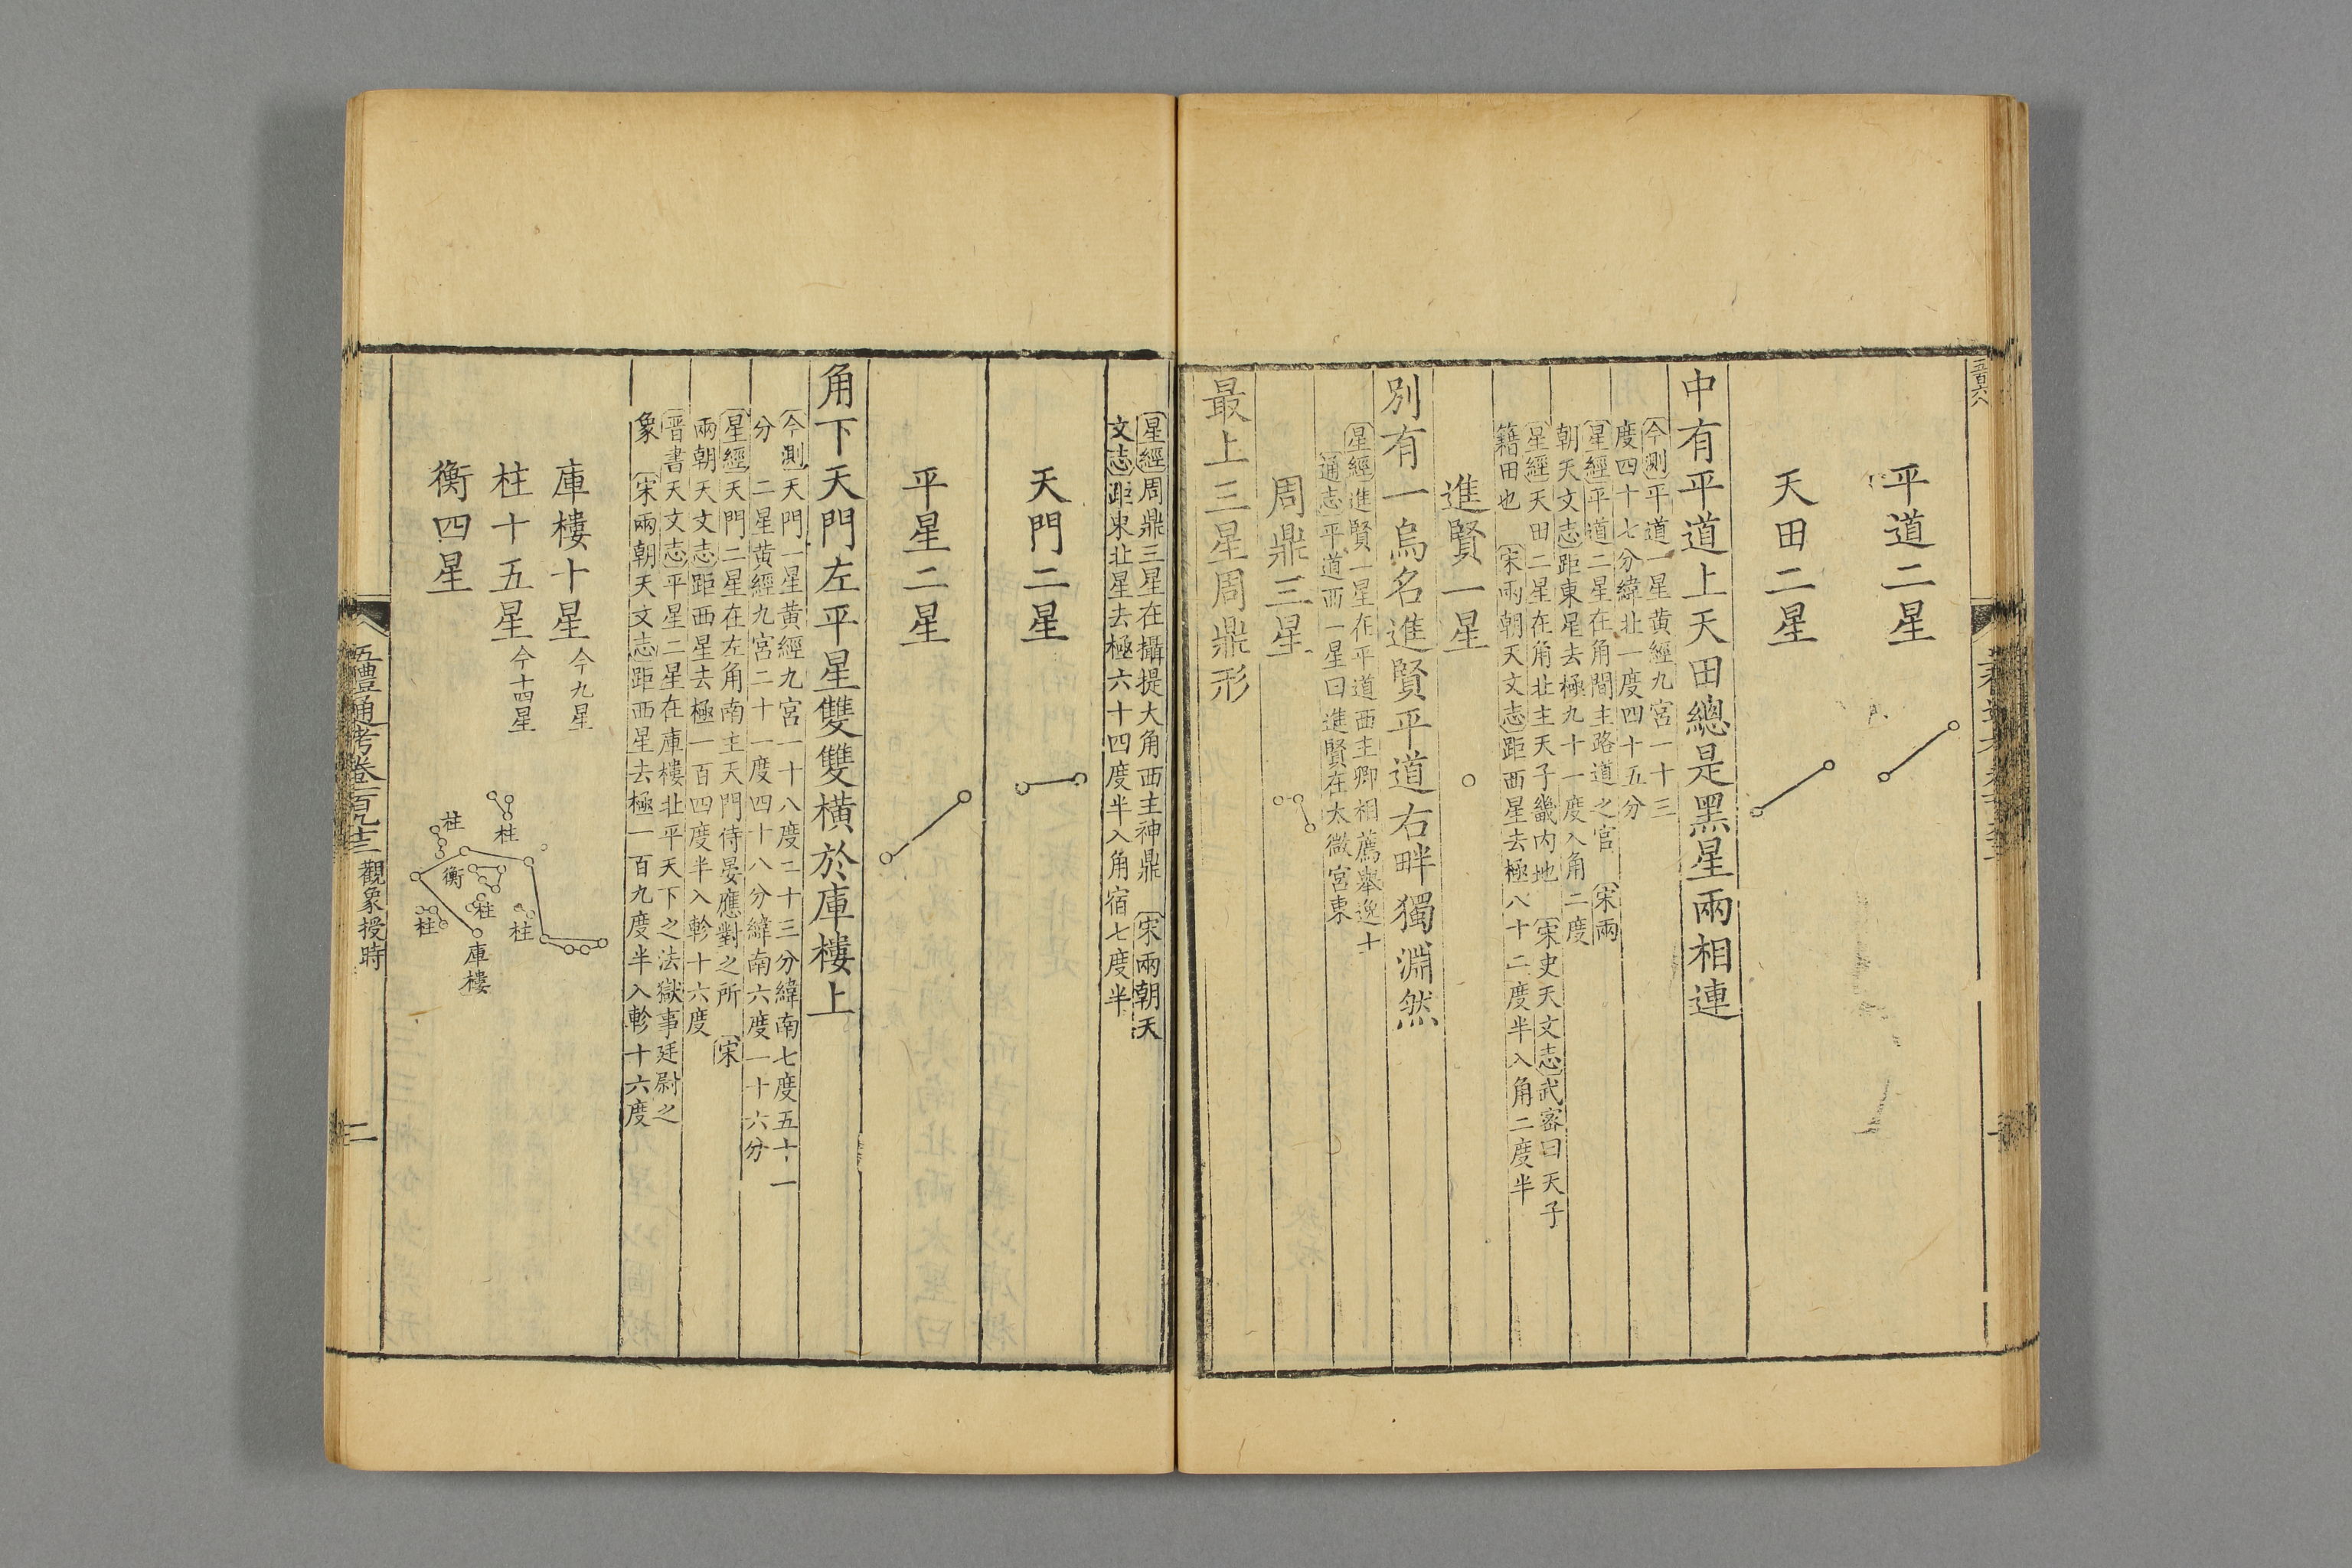 五百六八
平道二星
天田二星
中有平道上天田總是黑星兩相連
今測平道一星黃經九宮一十三
度四十七分緯北一度四十五分
星經平道二星在角間主路道之官 宋兩
朝天文志距東星去極九十一度入角二度
星經天田二星在角北主天子畿內地 宋史天文志武密曰天子
籍田也 宋兩朝天文志距西星去極八十二度半入角二度半
進賢一星
別有一烏名進賢平道右畔獨淵然
星經進賢一星在平道西主卿相薦舉逸士
通志平道西一星曰進賢在太微宮東
周鼎三星
最上三星周鼎形
星經周鼎三星在攝提大角西主神鼎 宋兩朝天
文志距東北星去極六十四度半入角宿七度半
天門二星
平星二星
角下天門左平星雙雙橫於庫樓上
今測天門一星黃經九宮一十八度二十三分緯南七度五十一
分 二星黃經九宮二十一度四十八分緯南六度一十六分
星經天門二星在左角南主天門侍宴應對之所 宋
兩朝天文志距西星去極一百四度半入軫十六度
晉書天文志平星二星在庫樓北平天下之法獄事廷尉之
象 宋兩朝天文志距西星去極一百九度半入軫十六度
庫樓十星今九星
柱十五星今十四星
衡四星
柱
柱
衡
柱
柱
柱
庫樓
五禮通考卷一百九十三 觀象授時
二